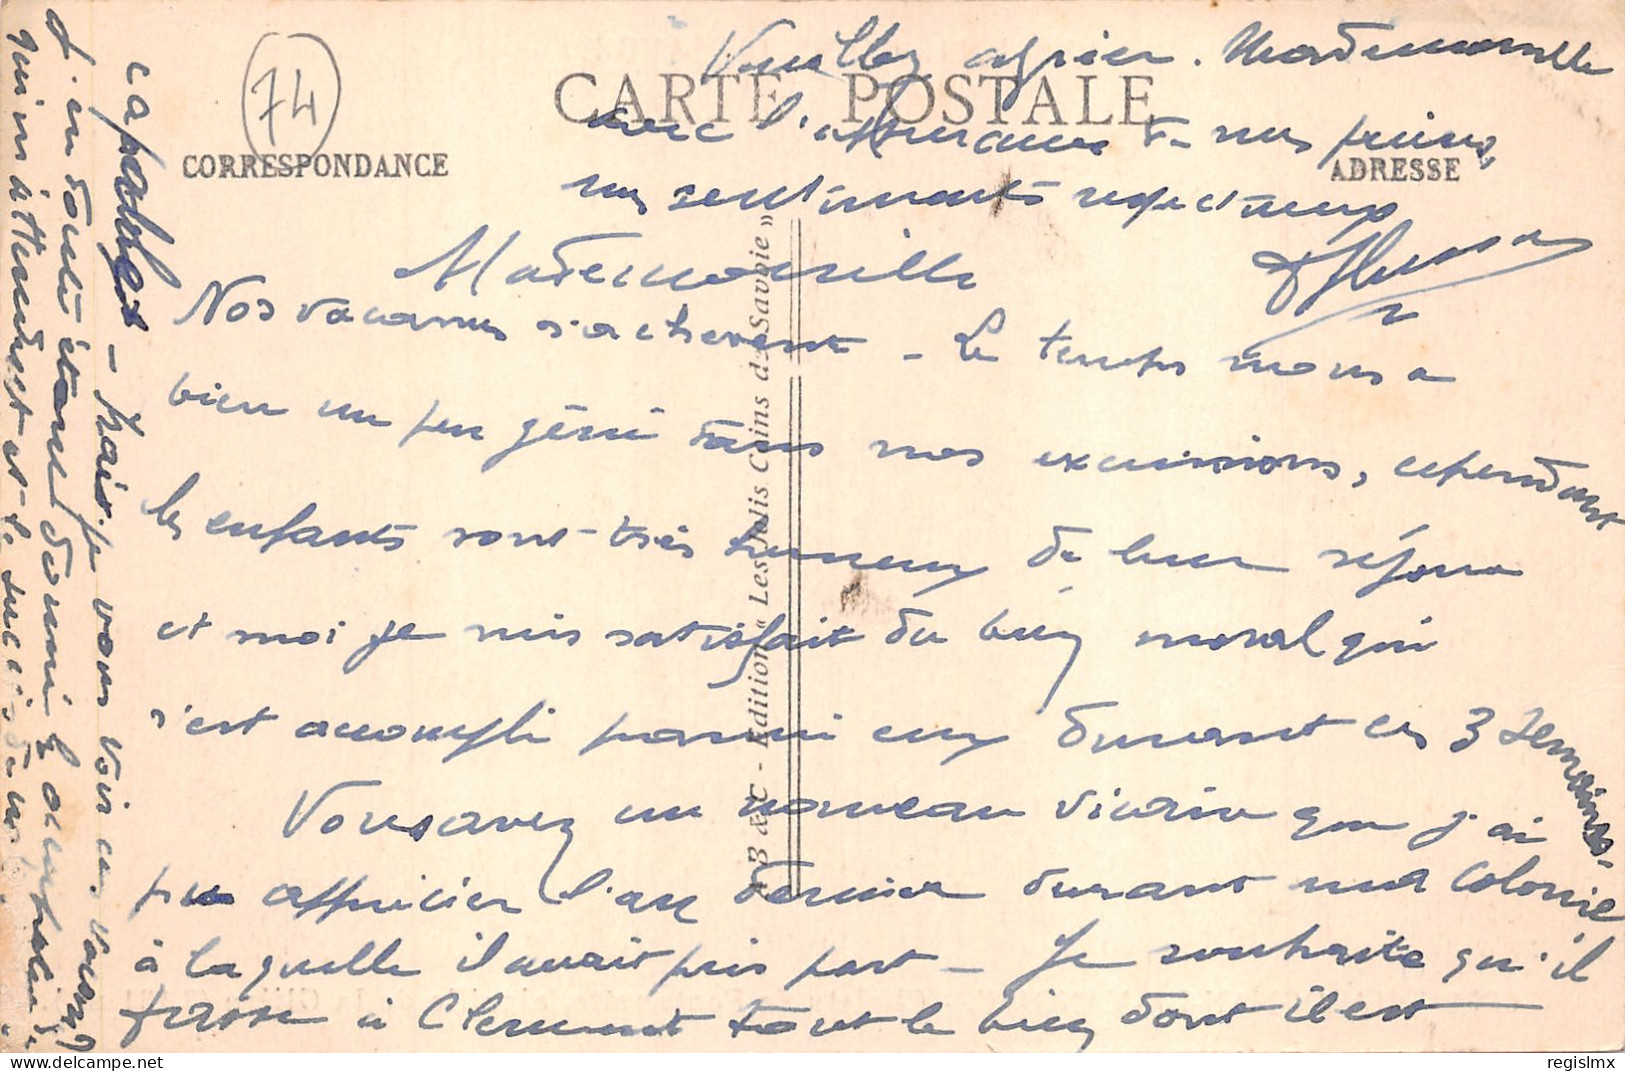 74
CARTE POSTALE
CORRESPONDANCE
ADRESSE
B & C - Edition « Les Jolis Coins de Savoie »
Mademoiselle
Nos vacances s'achèvent - Le temps nous a
bien un peu gêné dans nos excursions, cependant
les enfants sont très heureux de leur séjour
et moi je suis satisfait du bien moral qui
s'est accompli parmi eux durant ces 3 semaines.
Vous avez un nouveau vicaire que j'ai
pu apprécier l'an dernier durant ma Colonie
à laquelle il avait pris part - Je souhaite qu'il
fasse à Clermont tout le bien dont il est
capable - Mais je vous voir en
J'en doute étant donné les occupations
qui m'attendent et
Veuillez agréer, Mademoiselle
avec l'assurance de mes prières,
mes sentiments respectueux
regislmx